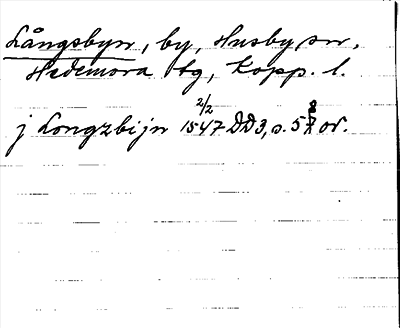 Långsbyn, by, Husby sn,
Hedemora tg, Kopp. l.
j Longzbijn 1547 2/2 DD3, s. 58 or.